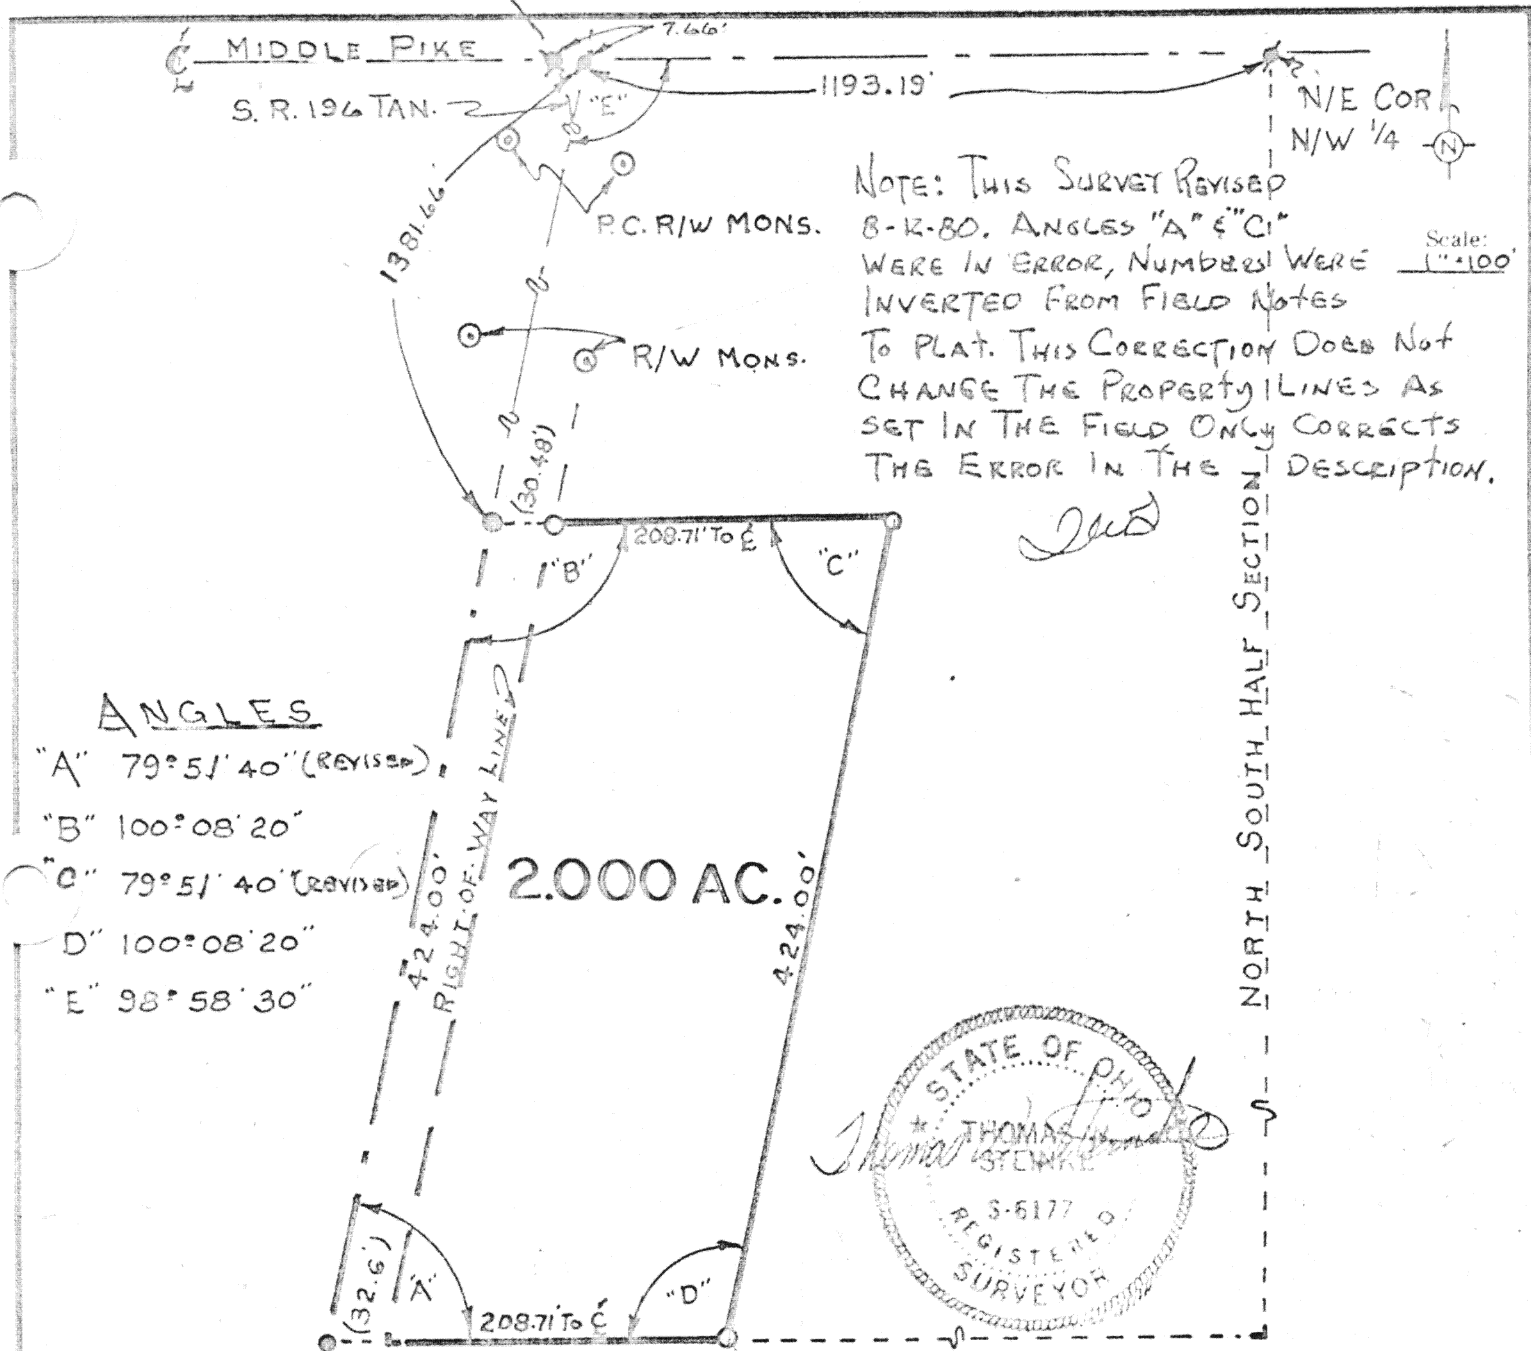 7.66'
℄ MIDDLE PIKE
1193.19'
S. R. 196 TAN.
"E"
N/E COR
N/W 1/4
N
1381.66'
P.C. R/W MONS.
NOTE: THIS SURVEY REVISED
8-12-80. ANGLES "A" & "C"
WERE IN ERROR, NUMBERS WERE
INVERTED FROM FIELD NOTES
TO PLAT. THIS CORRECTION DOES NOT
CHANGE THE PROPERTY LINES AS
SET IN THE FIELD ONLY CORRECTS
THE ERROR IN THE DESCRIPTION.
Scale:
1"=100'
R/W MONS.
(30.48')
208.71' TO ℄
"B"
"C"
NORTH SOUTH HALF SECTION
ANGLES
"A" 79°51'40" (REVISED)
"B" 100°08'20"
"C" 79°51'40" (REVISED)
"D" 100°08'20"
"E" 98°58'30"
424.00'
RIGHT-OF-WAY LINE
2.000 AC.
424.00'
STATE OF OHIO
THOMAS
S-6177
REGISTERED
SURVEYOR
(32.6')
"A"
208.71' TO ℄
"D"